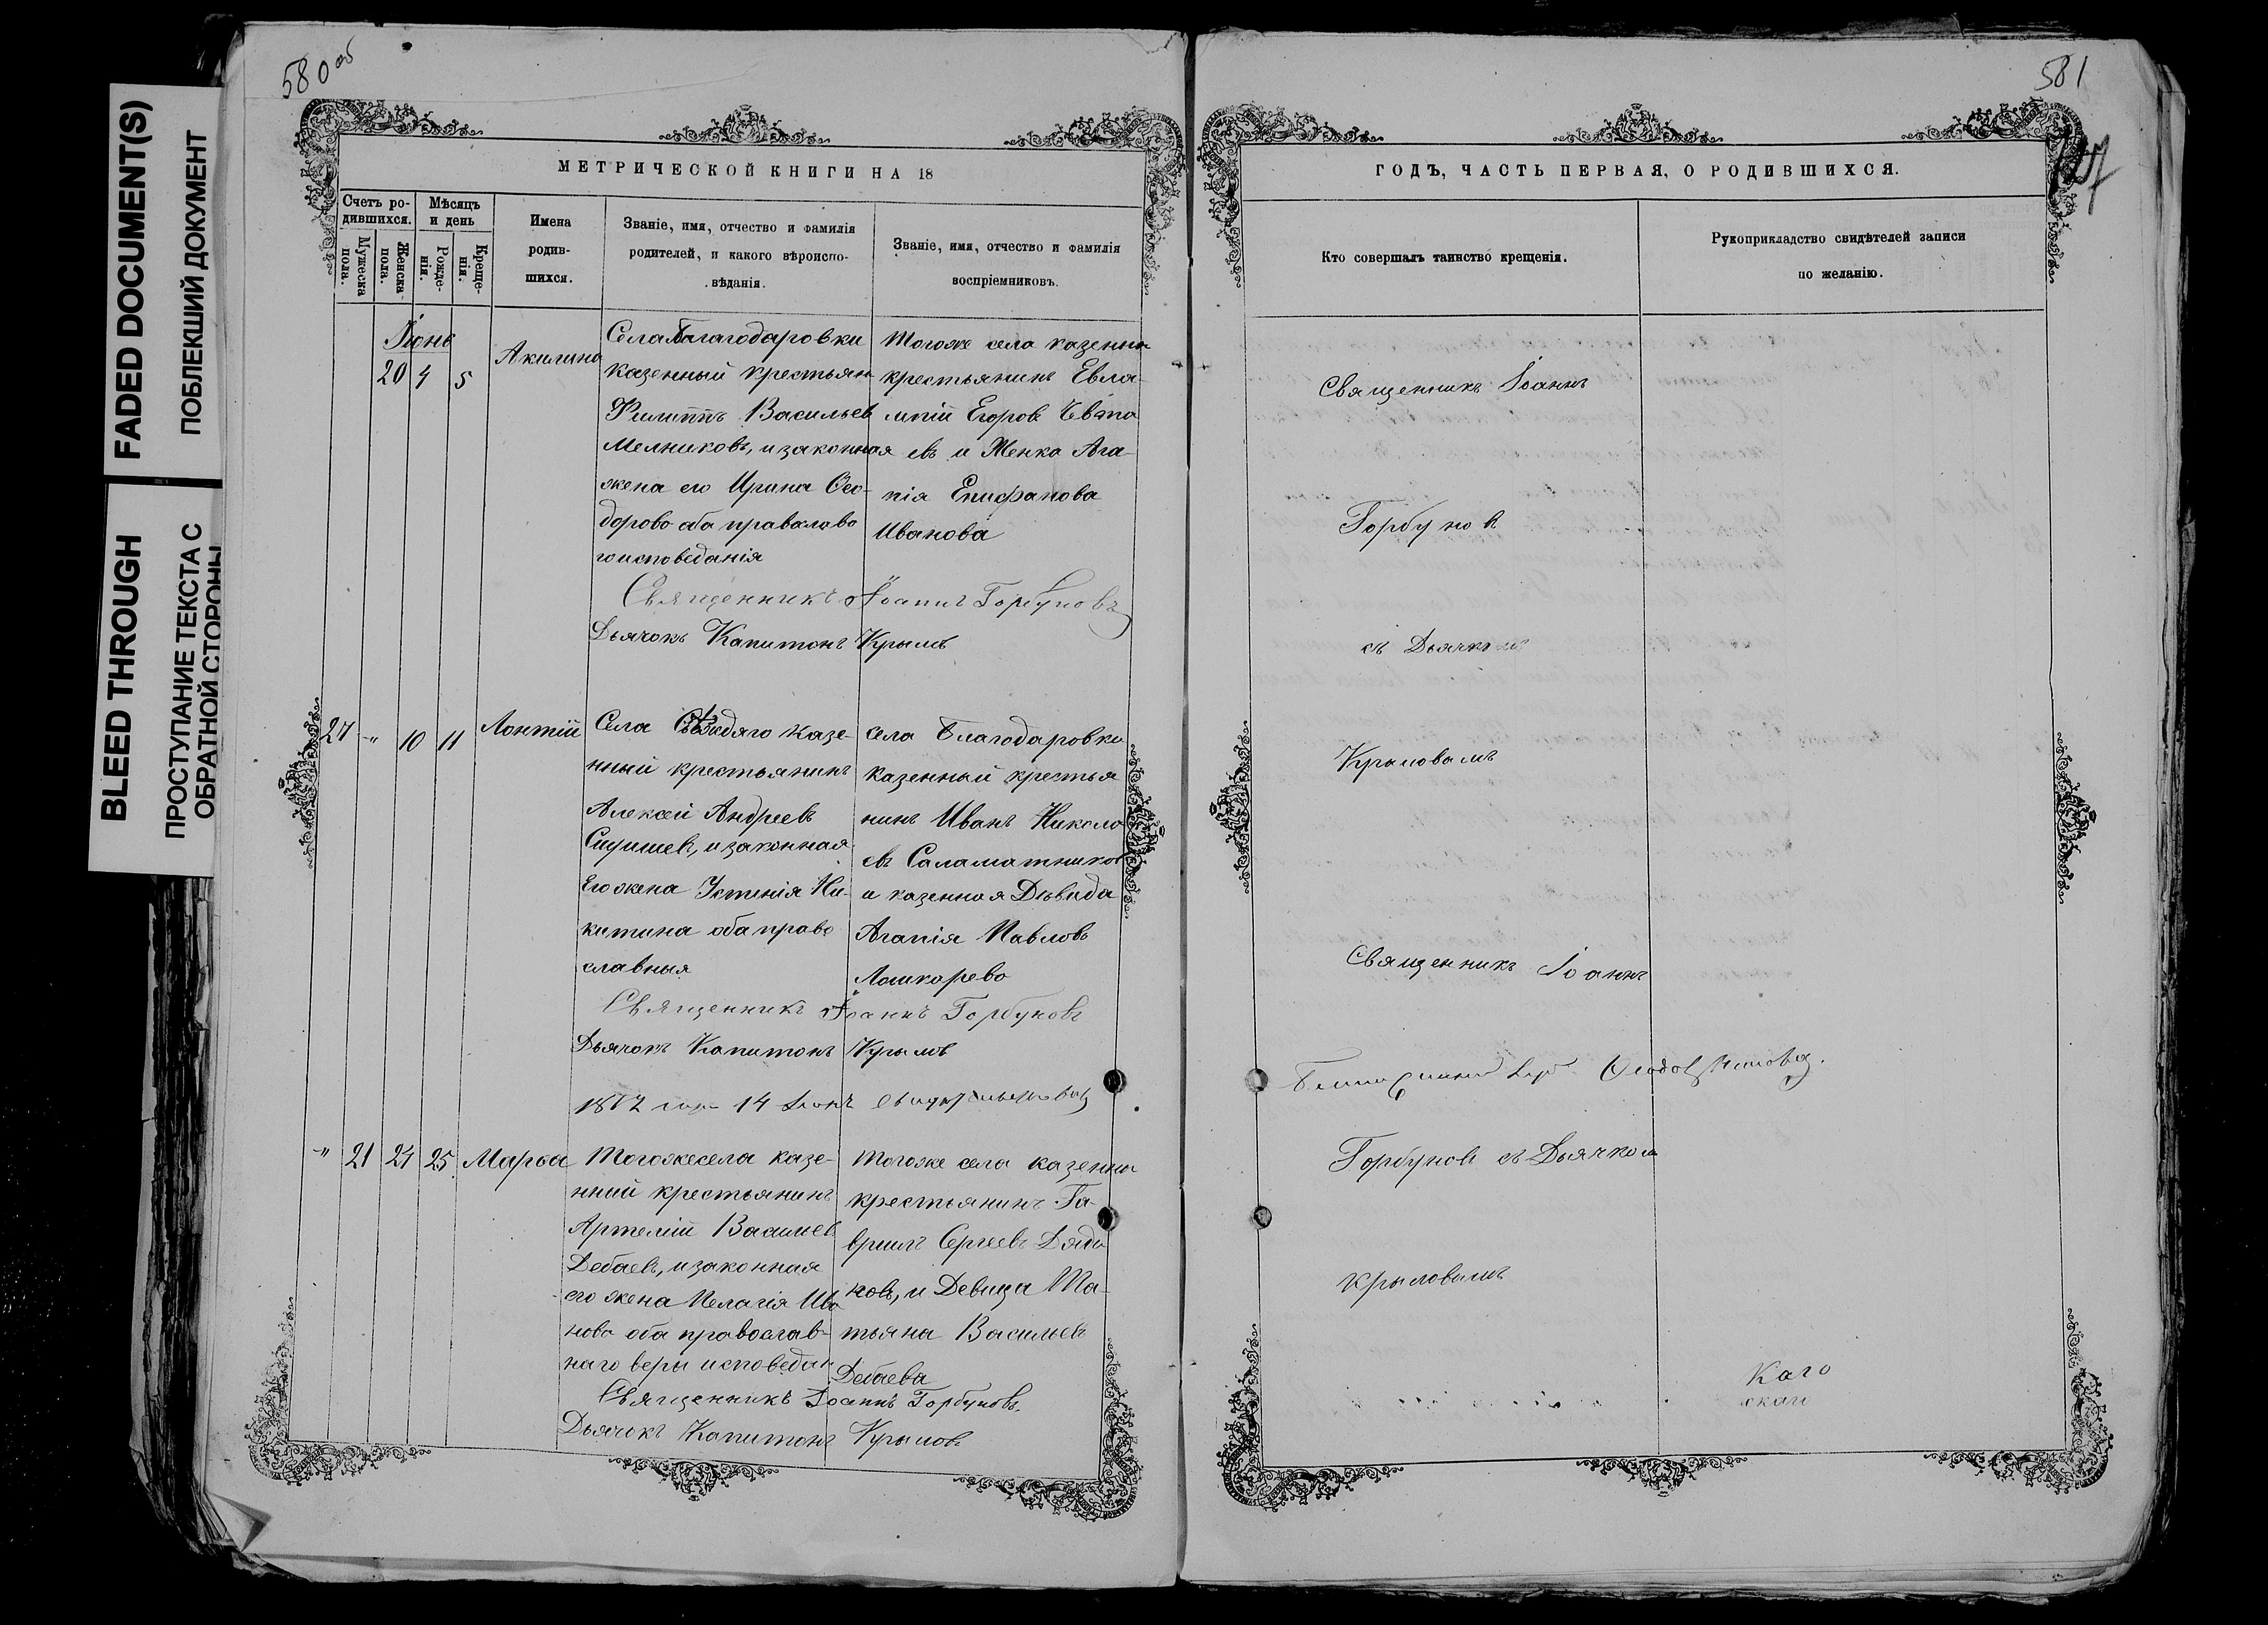 580 об
581
FADED DOCUMENT(S)
ПОБЛЕКШИЙ ДОКУМЕНТ
BLEED THROUGH
ПРОСТУПАНИЕ ТЕКСТА С
ОБРАТНОЙ СТОРОНЫ
МЕТРИЧЕСКОЙ КНИГИ НА 18
Счетъ ро-
дившихся.
Мужеска
пола.
Женска
пола.
Мѣсяцъ
и день
Рожде-
нія.
Креще-
нія.
Имена
родив-
шихся.
Званіе, имя, отчество и фамилія
родителей, и какого вѣроиспо-
вѣданія.
Званіе, имя, отчество и фамилія
воспріемниковъ.
Іюнь
20 4 5
Акилина
Села Благодаровки
казенный крестьян
Филиппъ Васильев
Мелниковъ, и законная
жена его Ирина Ѳео-
дорова оба православо
го исповеданія
Тогоже села казенны
крестьянинъ Евла-
мпій Егоров
евъ и Женка Ага-
пія Епифанова
Иванова
Священникъ Іоаннъ Горбуновъ
Дьячокъ Капитонъ Крылов
27 " 10 11
Лонтій
Села казе-
нный крестьянинъ
Алексей Андреевъ
и законная
Его жена Устенія Ни-
китина оба право
славныя
села Благодаровки
казенный крестья
нинъ Иванъ Никола
евъ Саламатников
и казенная Дѣвида
Агапія Павловъ
Лошкарева
Священникъ Іоаннъ Горбуновъ
Дьячокъ Капитонъ Крылов
14
" 21 24 25
Марѳа
Тогожесела казе-
нный крестьянинъ
Артемій Васильев
Дебаевъ, и законная
его жена Пелагія Ива
нова оба православ-
наго веры исповедан
Тогоже села казенны
крестьянинъ Га-
вриилъ Сергеевъ Дяди
новъ, и Девица Та-
тьяна Васильев
Дебаева
Священникъ Іоаннъ Горбуновъ
Дьячокъ Капитонъ Крылов
ГОДЪ, ЧАСТЬ ПЕРВАЯ, О РОДИВШИХСЯ.
Кто совершалъ таинство крещенія.
Рукоприкладство свидѣтелей записи
по желанію.
Священникъ Іоаннъ
Горбунов
съ Дьячком
Крыловымъ
Священникъ Іоаннъ
Горбунов съ Дьячком
Крыловымъ
каго
скаго